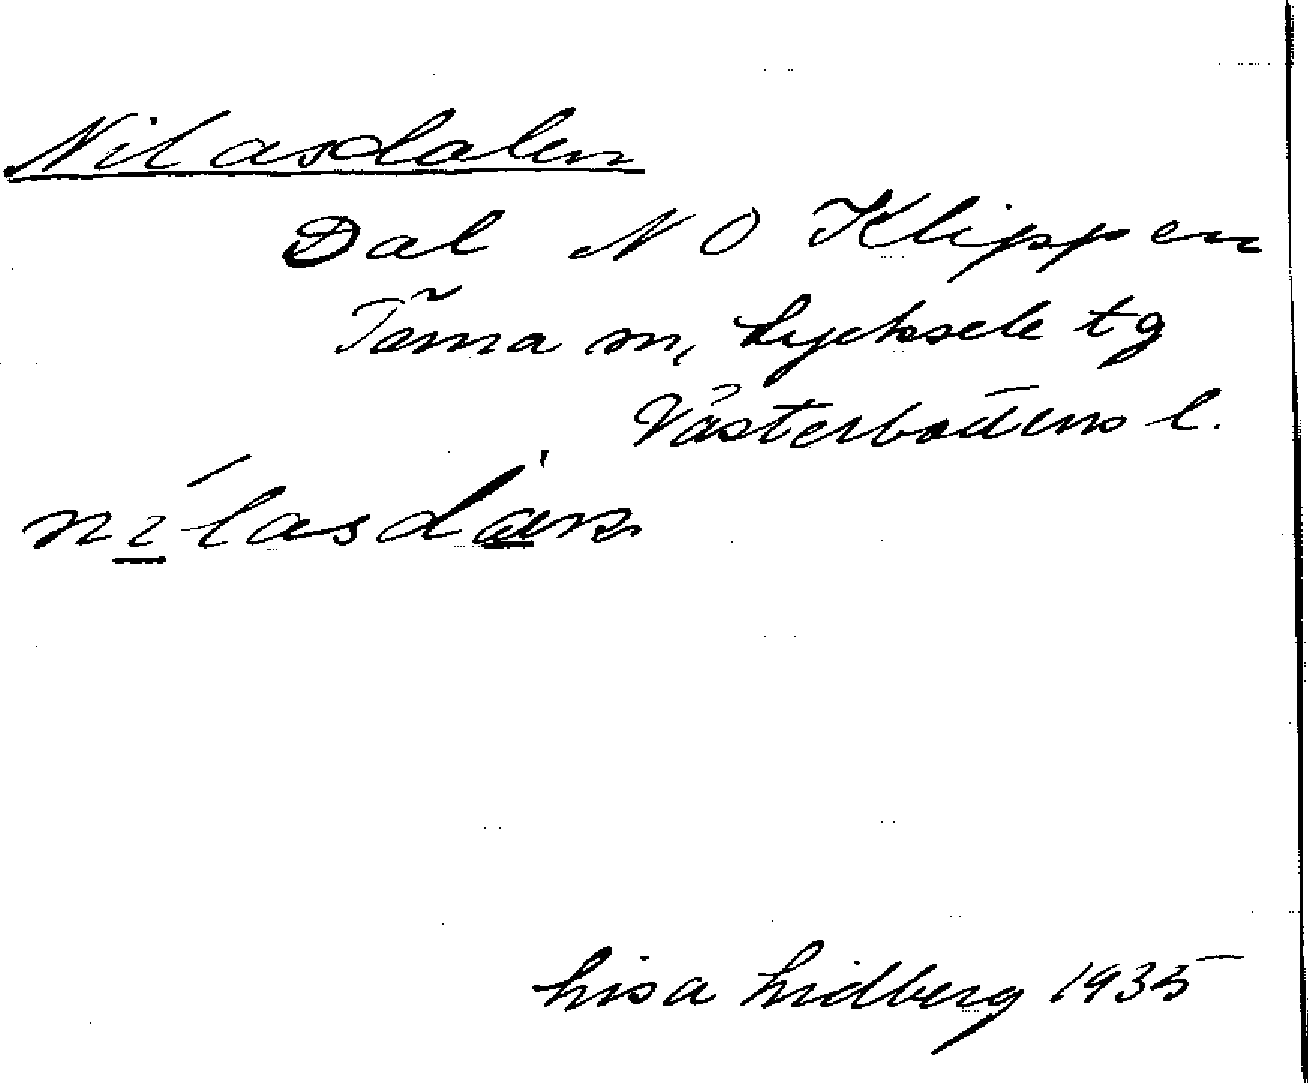 Nilasdalen
Dal N O Klippen
Tärna m, Lycksele tg
Västerbottens l.
Lisa Lidberg 1935